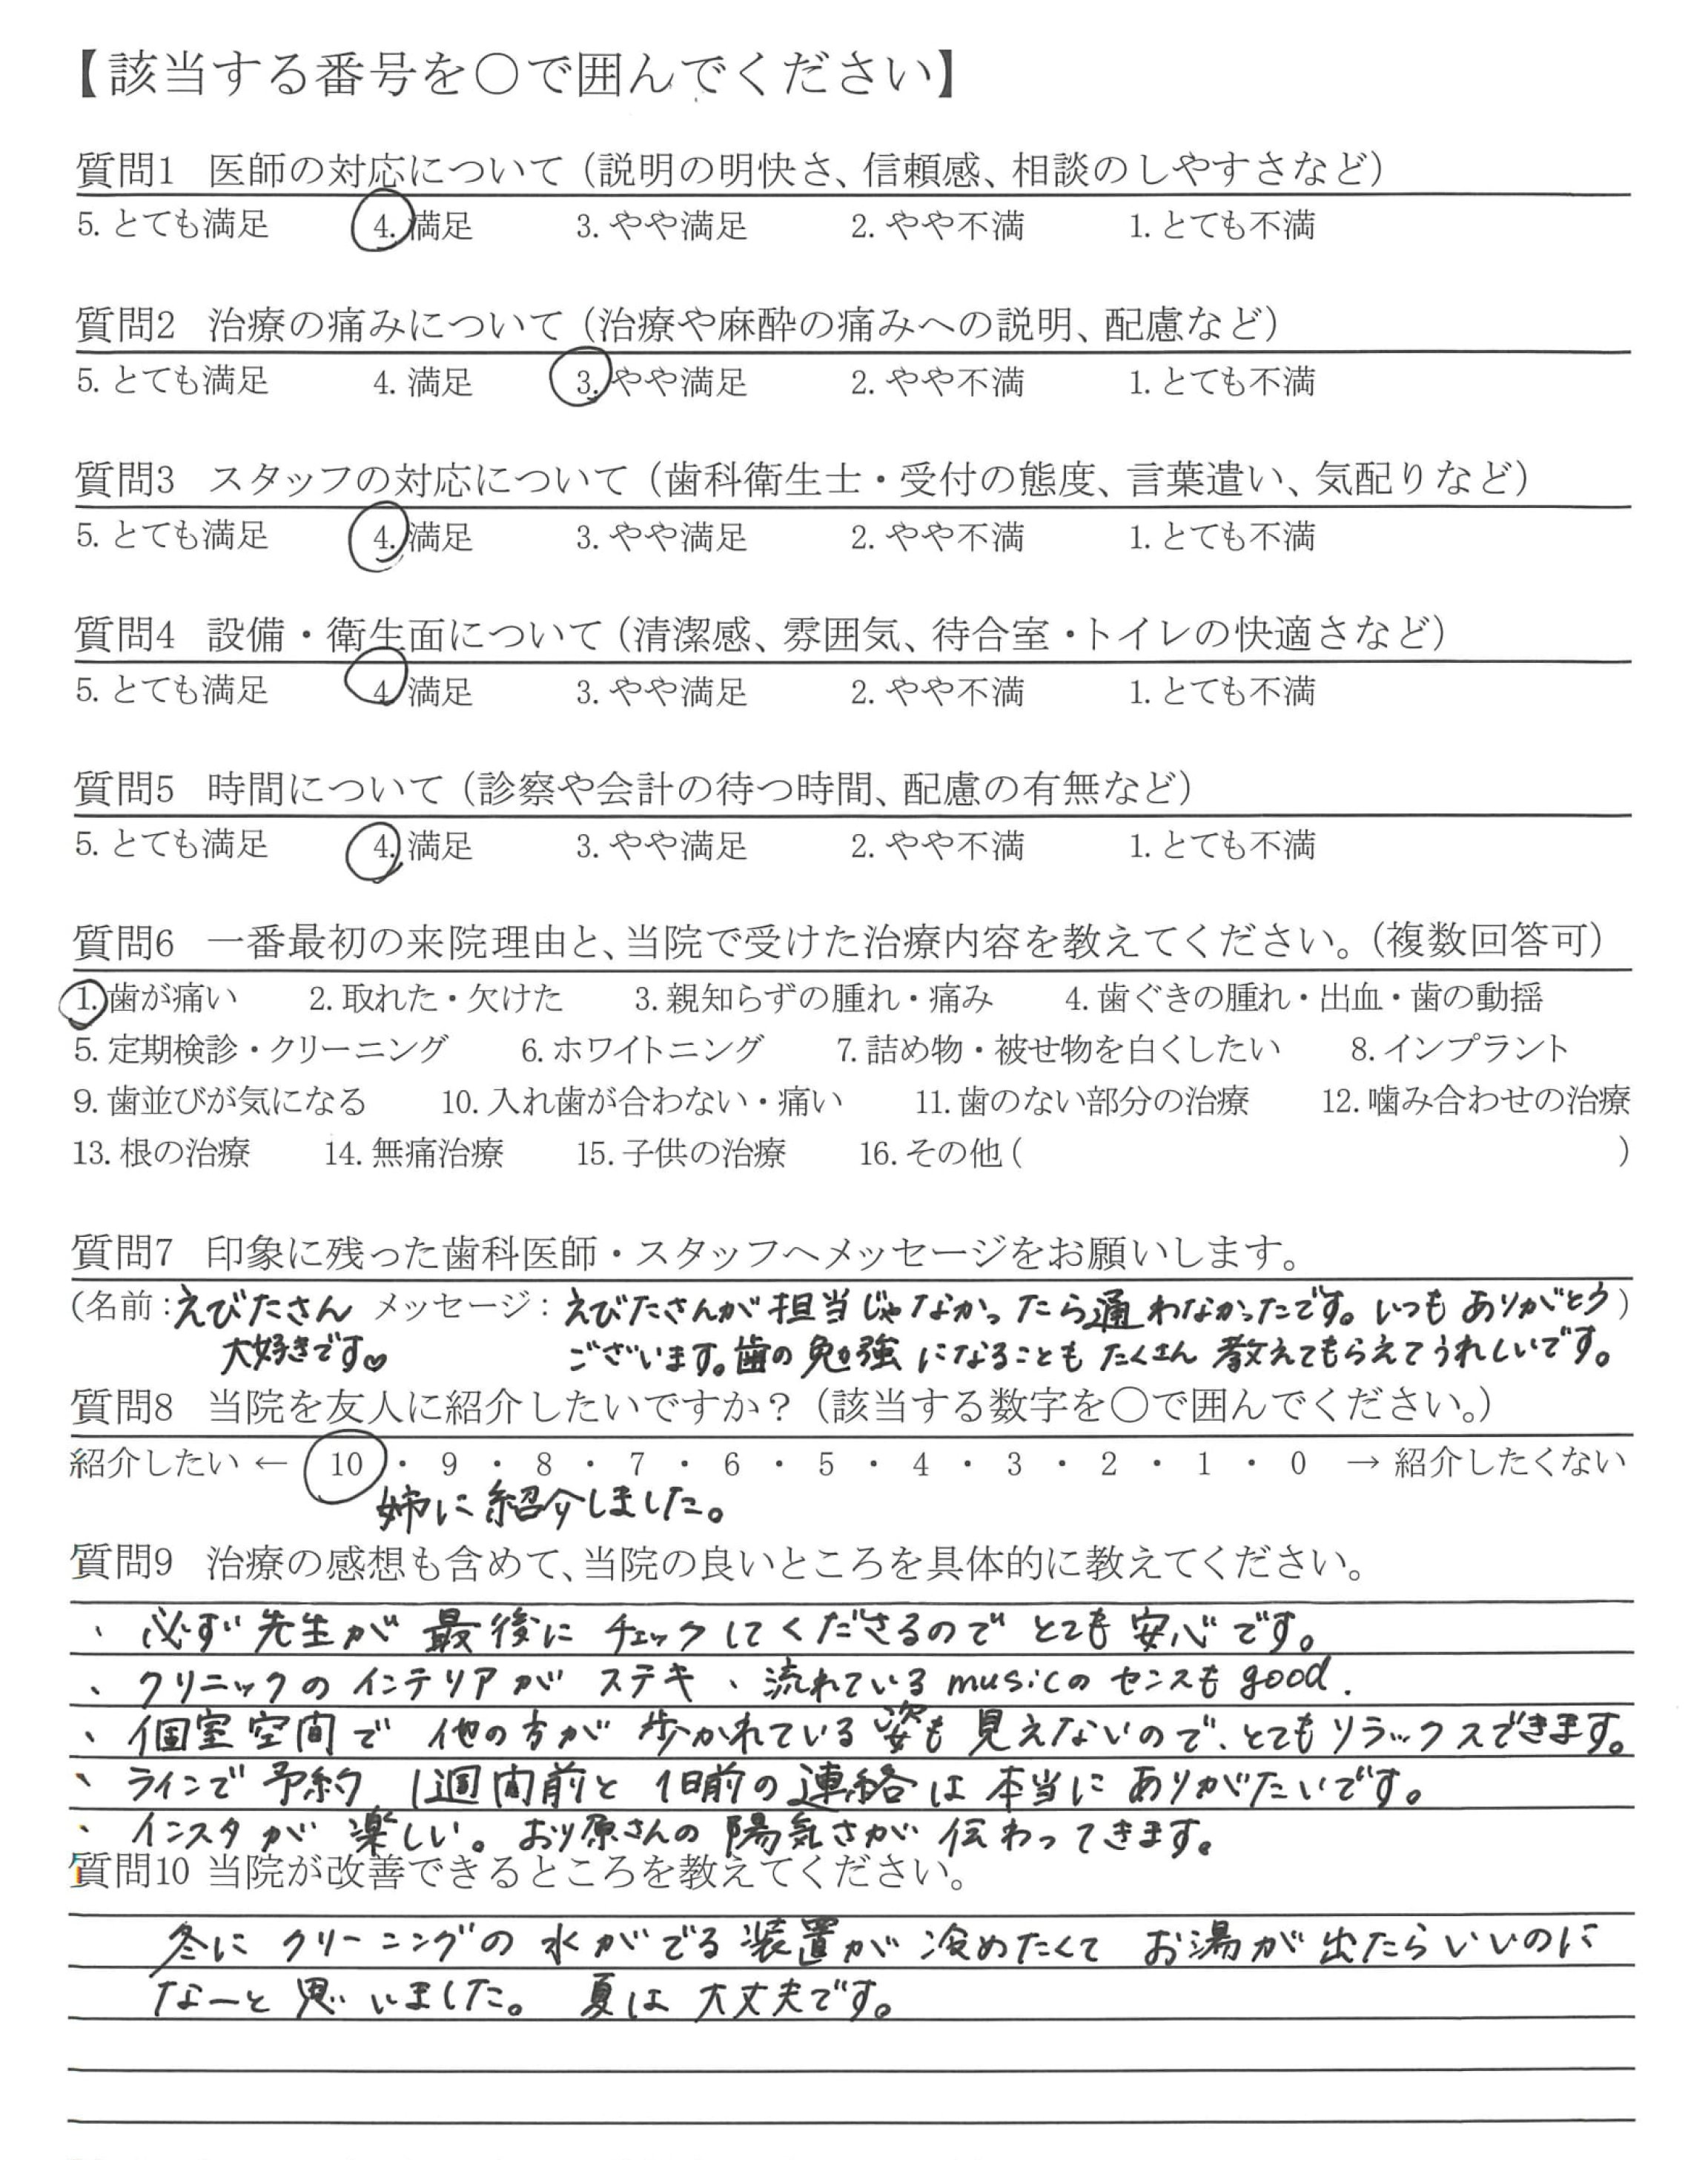 【該当する番号を〇で囲んでください】
質問1 医師の対応について（説明の明快さ、信頼感、相談のしやすさなど）
5. とても満足 4. 満足 3. やや満足 2. やや不満 1. とても不満
質問2 治療の痛みについて（治療や麻酔の痛みへの説明、配慮など）
5. とても満足 4. 満足 3. やや満足 2. やや不満 1. とても不満
質問3 スタッフの対応について（歯科衛生士・受付の態度、言葉遣い、気配りなど）
5. とても満足 4. 満足 3. やや満足 2. やや不満 1. とても不満
質問4 設備・衛生面について（清潔感、雰囲気、待合室・トイレの快適さなど）
5. とても満足 4. 満足 3. やや満足 2. やや不満 1. とても不満
質問5 時間について（診察や会計の待つ時間、配慮の有無など）
5. とても満足 4. 満足 3. やや満足 2. やや不満 1. とても不満
質問6 一番最初の来院理由と、当院で受けた治療内容を教えてください。（複数回答可）
1. 歯が痛い 2. 取れた・欠けた 3. 親知らずの腫れ・痛み 4. 歯ぐきの腫れ・出血・歯の動揺
5. 定期検診・クリーニング 6. ホワイトニング 7. 詰め物・被せ物を白くしたい 8. インプラント
9. 歯並びが気になる 10. 入れ歯が合わない・痛い 11. 歯のない部分の治療 12. 噛み合わせの治療
13. 根の治療 14. 無痛治療 15. 子供の治療 16. その他（ ）
質問7 印象に残った歯科医師・スタッフへメッセージをお願いします。
（名前：えびたさん メッセージ：えびたさんが担当じゃなかったら通わなかったです。いつもありがとう）
大好きです♡ ございます。歯の勉強になることもたくさん教えてもらえてうれしいです。
質問8 当院を友人に紹介したいですか？（該当する数字を〇で囲んでください。）
紹介したい ← 10 ・ 9 ・ 8 ・ 7 ・ 6 ・ 5 ・ 4 ・ 3 ・ 2 ・ 1 ・ 0 → 紹介したくない
姉に紹介しました。
質問9 治療の感想も含めて、当院の良いところを具体的に教えてください。
、必ず先生が最後にチェックしてくださるのでとても安心です。
、クリニックのインテリアがステキ、流れているmusicのセンスもgood.
、個室空間で他の方が歩かれている姿も見えないので、とてもリラックスできます。
、ラインで予約 1週間前と1日前の連絡は本当にありがたいです。
、インスタが楽しい。おり原さんの陽気さが伝わってきます。
質問10 当院が改善できるところを教えてください。
冬にクリーニングの水がでる装置が冷めたくてお湯が出たらいいのに
なーと思いました。夏は大丈夫です。